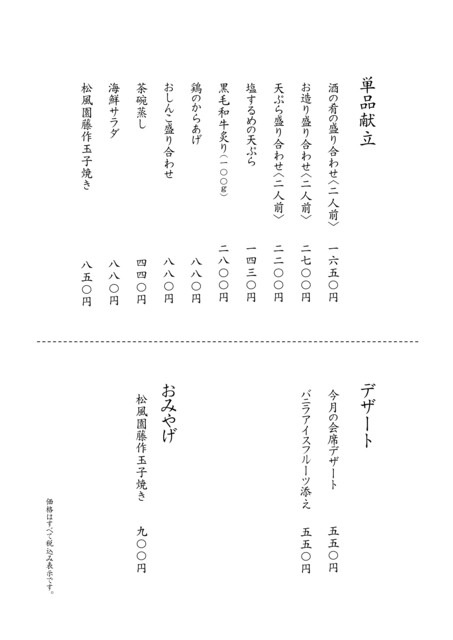 単品献立
酒の肴の盛り合わせ〈二人前〉 一六五〇円
お造り盛り合わせ〈二人前〉 二七〇〇円
天ぷら盛り合わせ〈二人前〉 二二〇〇円
塩するめの天ぷら 一四三〇円
黒毛和牛炙り(一〇〇g) 二八〇〇円
鶏のからあげ 八八〇円
おしんこ盛り合わせ 八八〇円
茶碗蒸し 四四〇円
海鮮サラダ 八八〇円
松風園藤作玉子焼き 八五〇円
デザート
今月の会席デザート 五五〇円
バニラアイスフルーツ添え 五五〇円
おみやげ
松風園藤作玉子焼き 九〇〇円
価格はすべて税込み表示です。